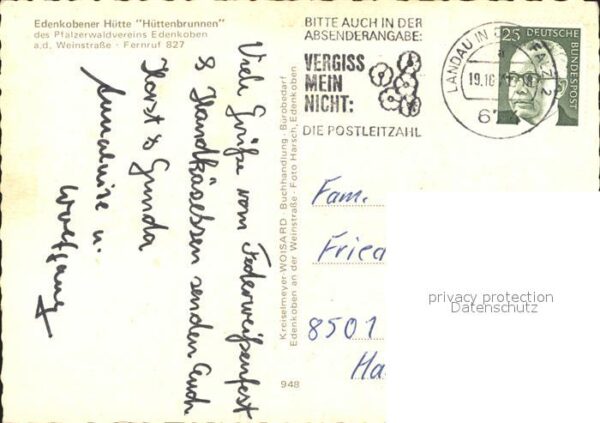 Edenkobener Hütte "Hüttenbrunnen"
des Pfälzerwaldvereins Edenkoben
a.d. Weinstraße - Fernruf 827
Viele Grüße vom Federweißenfest
& Handkäsessen senden Euch
Horst & Gunda
Annaluise u.
Wolfgang
Kreiselmeyer-WOISARD - Buchhandlung - Bürobedarf
Edenkoben an der Weinstraße - Foto Harsch, Edenkoben
948
BITTE AUCH IN DER
ABSENDERANGABE:
VERGISS
MEIN
NICHT:
DIE POSTLEITZAHL
LANDAU IN
19.10
25
DEUTSCHE
BUNDESPOST
Fam.
Fried
8501
Ha
privacy protection
Datenschutz